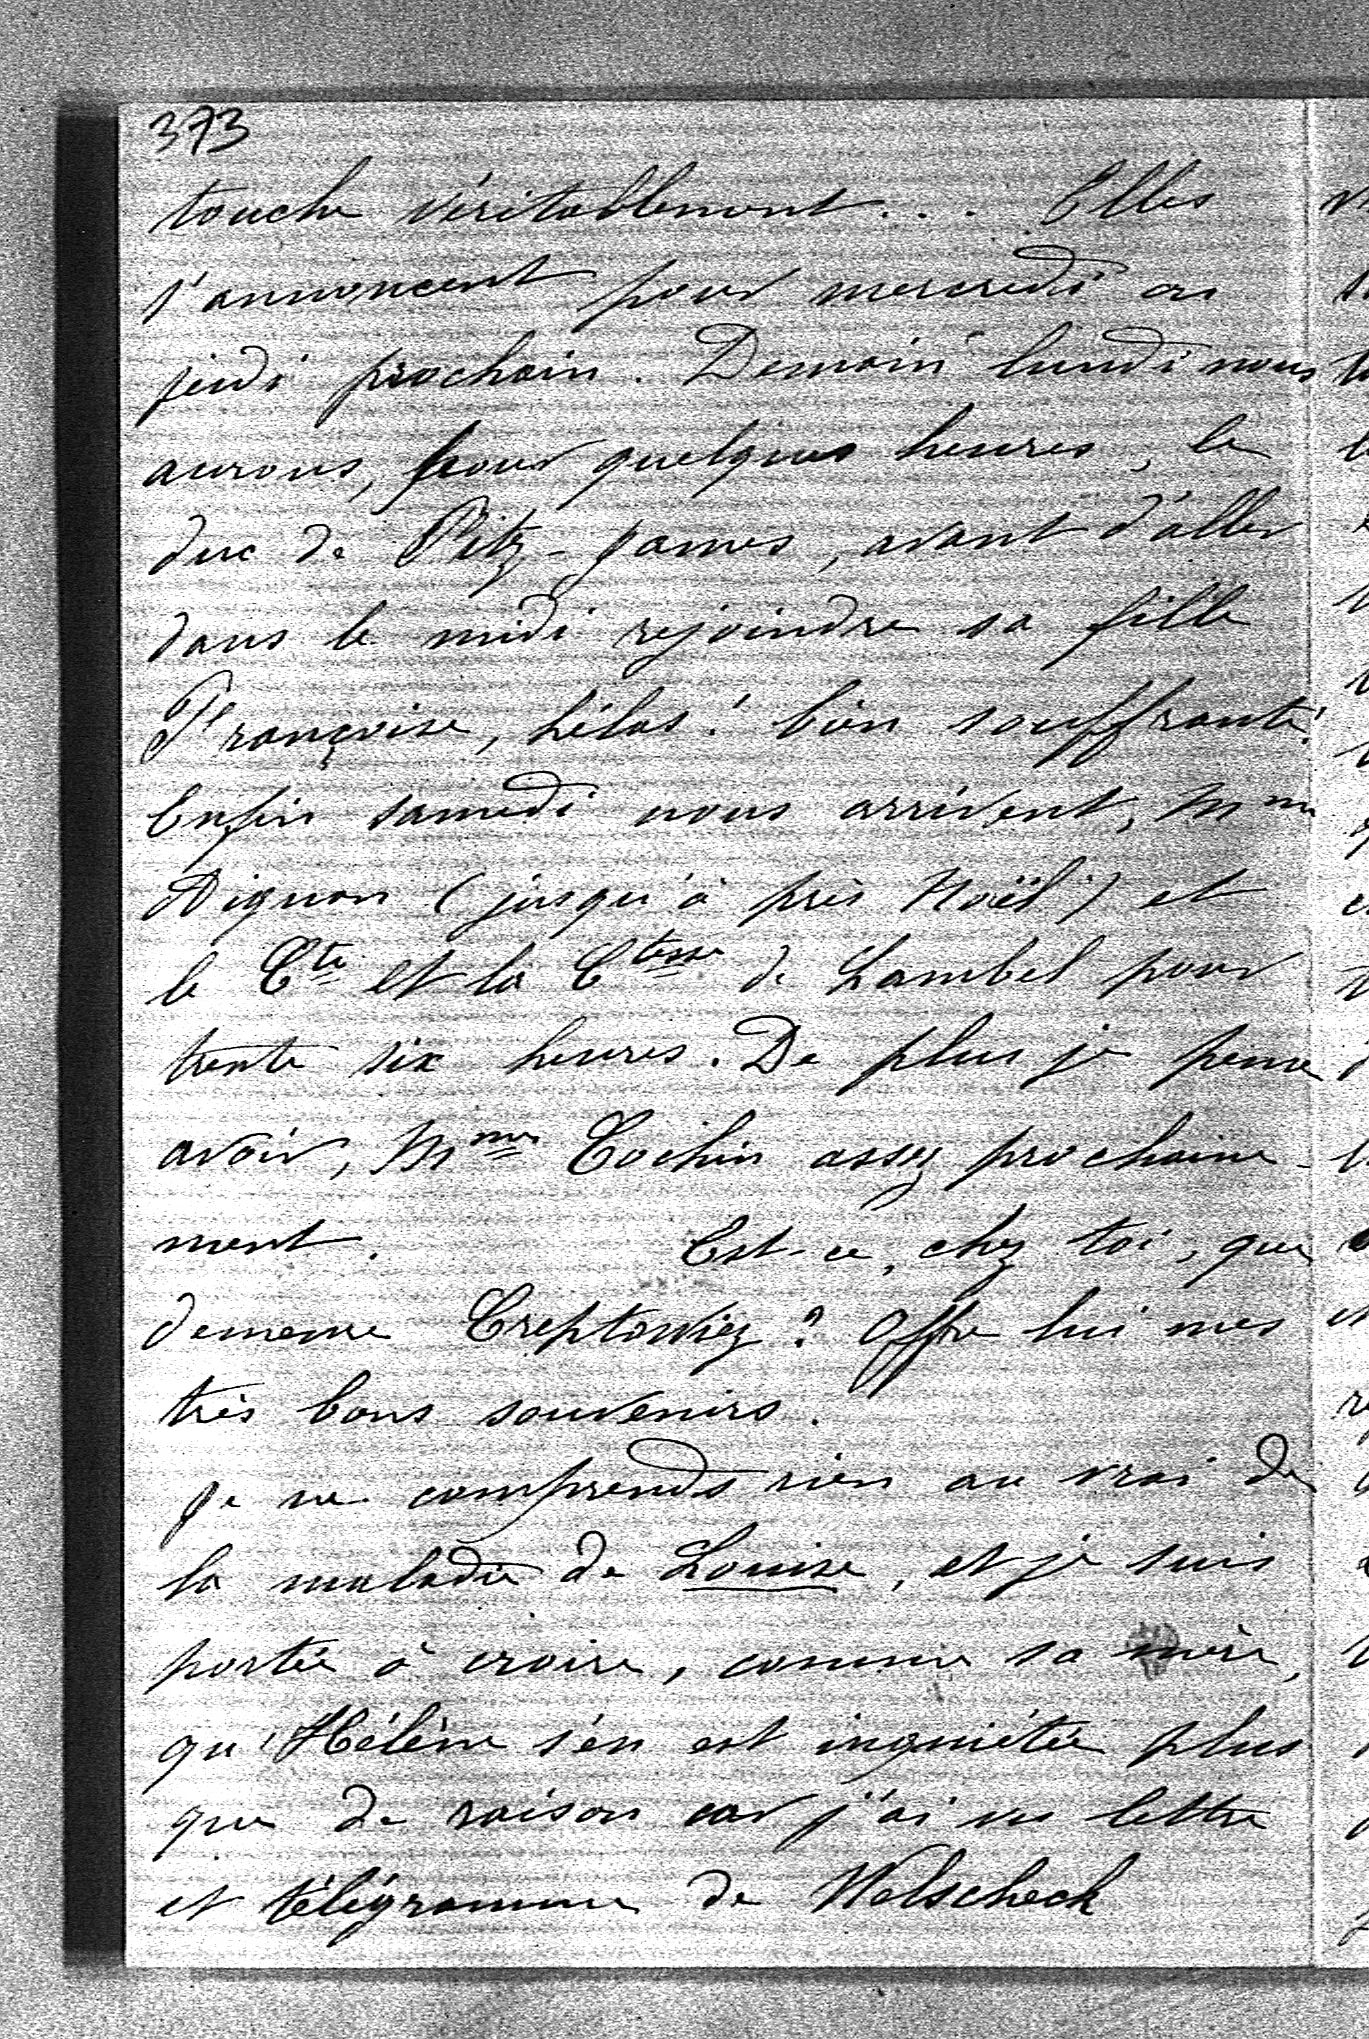 373
touche véritablement... Elles
s'annoncent pour mercredi ou
jeudi prochain. Demain lundi nous
aurons, pour quelques heures, le
duc de Fitz-James, avant d'aller
dans le midi rejoindre sa fille
Françoise, hélas! bien souffrante!
Enfin samedi nous arrivent, Mme
Aignon (jusqu'à près Noël) et
le Cte et la Ctesse de Lambel pour
trente six heures. De plus je pense
avoir, Mme Cochin assez prochaine-
ment. Est-ce, chez toi, que
demeure Creptowiez? Offre lui mes
très bons souvenirs.
Je ne comprends rien au vrai de
la maladie de Louise, et je suis
portée à croire, comme sa mère,
qu'Hélène s'en est inquiétée plus
que de raison car j'ai vu lettre
et télégramme de Welscheck